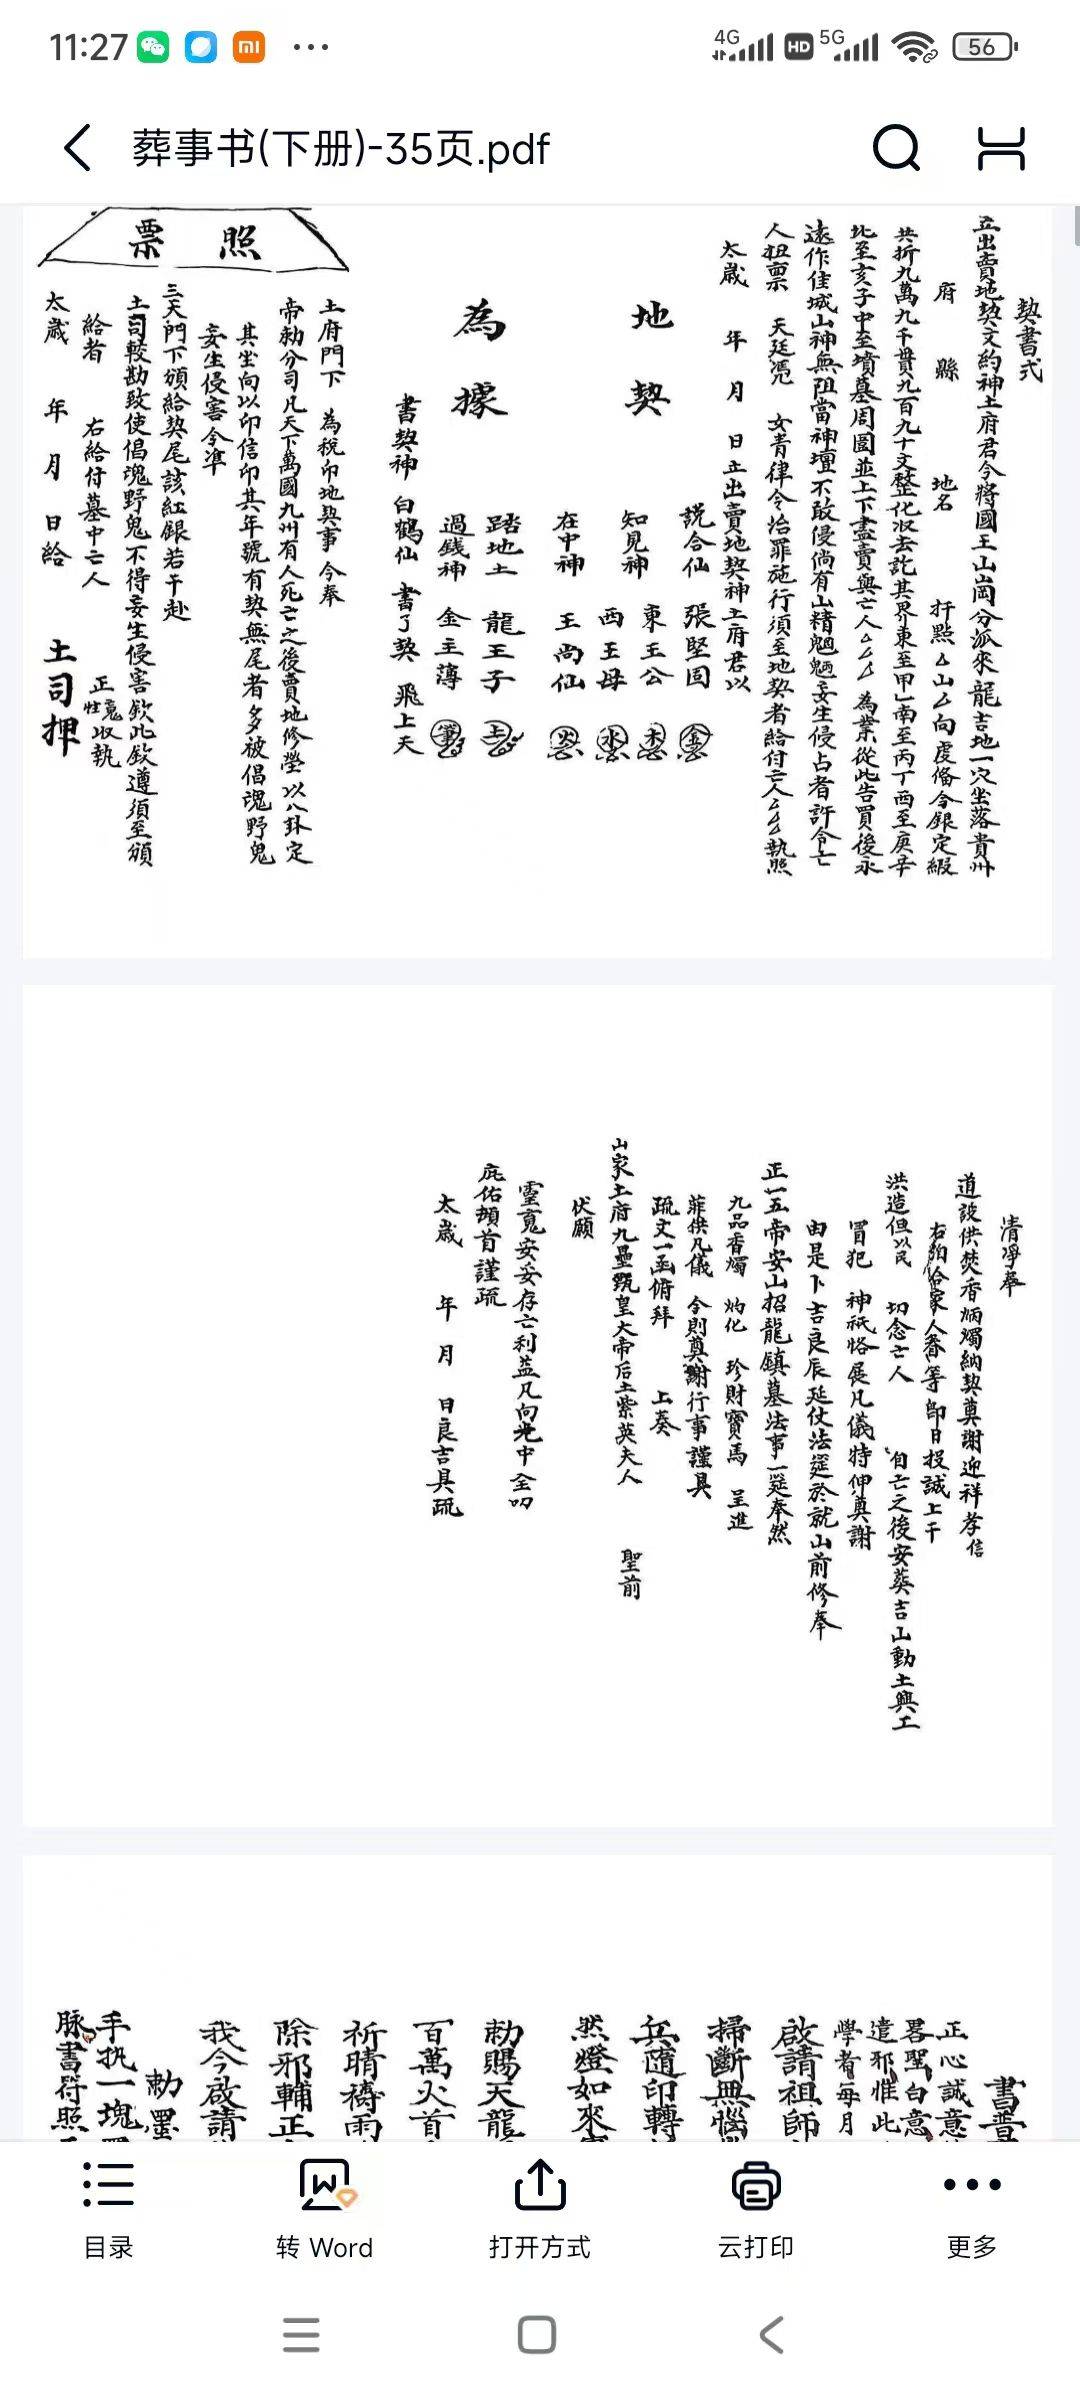 11:27
4G HD 5G 56
葬事书(下册)-35页.pdf
契書式
立出賣地契文約神土府君今將國王山崗分派來龍吉地一穴坐落貴州
府 縣 地名 扦點△山△向虔俻令銀定綴
共折九萬九千貫九百九十文整化收去訖其界東至甲乙南至丙丁西至庚辛
北至亥子中至墳墓周圍並上下盡賣與亡人△△△為業從此告買後永
遠作佳城山神無阻當神壇不敢侵倘有山精魍魎妄生侵占者許令亡
人狃禀 天廷憑 女青律令治罪施行須至地契者給付亡人△△△執照
太歲 年 月 日立出賣地契神土府君以
說合仙 張堅固 金
地契 知見神 東王公 木
西王母 水
在中神 王尚仙 火
為據 踏地土 龍王子 土
過錢神 金主薄 筆
書契神 白鶴仙 書了契 飛上天
照票
土府門下 為稅印地契事 今奉
帝勅分司凡天下萬國九州有人死亡之後賣地修塋以八卦定
其坐向以印信印其年號有契無尾者多被倡魂野鬼
妄生侵害令準
三天門下頒給契尾該紅銀若干赴
土司較勘致使倡魂野鬼不得妄生侵害欽此欽遵須至頒
給者 右給付墓中亡人 正魂收執
太歲 年 月 日給 土司押
清凈奉
道設供焚香炳燭納契奠謝迎祥孝信
右洎合家人眷等即日投誠上干
洪造但以民 切念亡人 自亡之後安葬吉山動土興工
冒犯 神祇恪展凡儀特伸奠謝
由是卜吉良辰延仗法筵於就山前修奉
正一五帝安山招龍鎮墓法事一筵奉然
九品香燭 灼化 珍財寶馬 呈進
菲供凡儀 今則奠謝行事謹具
疏文一函俯拜 上奏
山家土府九壘甄皇大帝后土紫英夫人 聖前
伏願
靈魂安妥存亡利益凡向光中全叨
庇佑頓首謹疏
太歲 年 月 日良吉具疏
書普
正心誠意
畧聖白意
遣邪惟此
學者每月
啟請祖師
掃斷無惱
兵隨印轉
然燈如來
勅賜天龍
百萬火首
祈晴禱雨
除邪輔正
我今啟請
勅墨
手执一塊
脉書符照
目录
转 Word
打开方式
云打印
更多